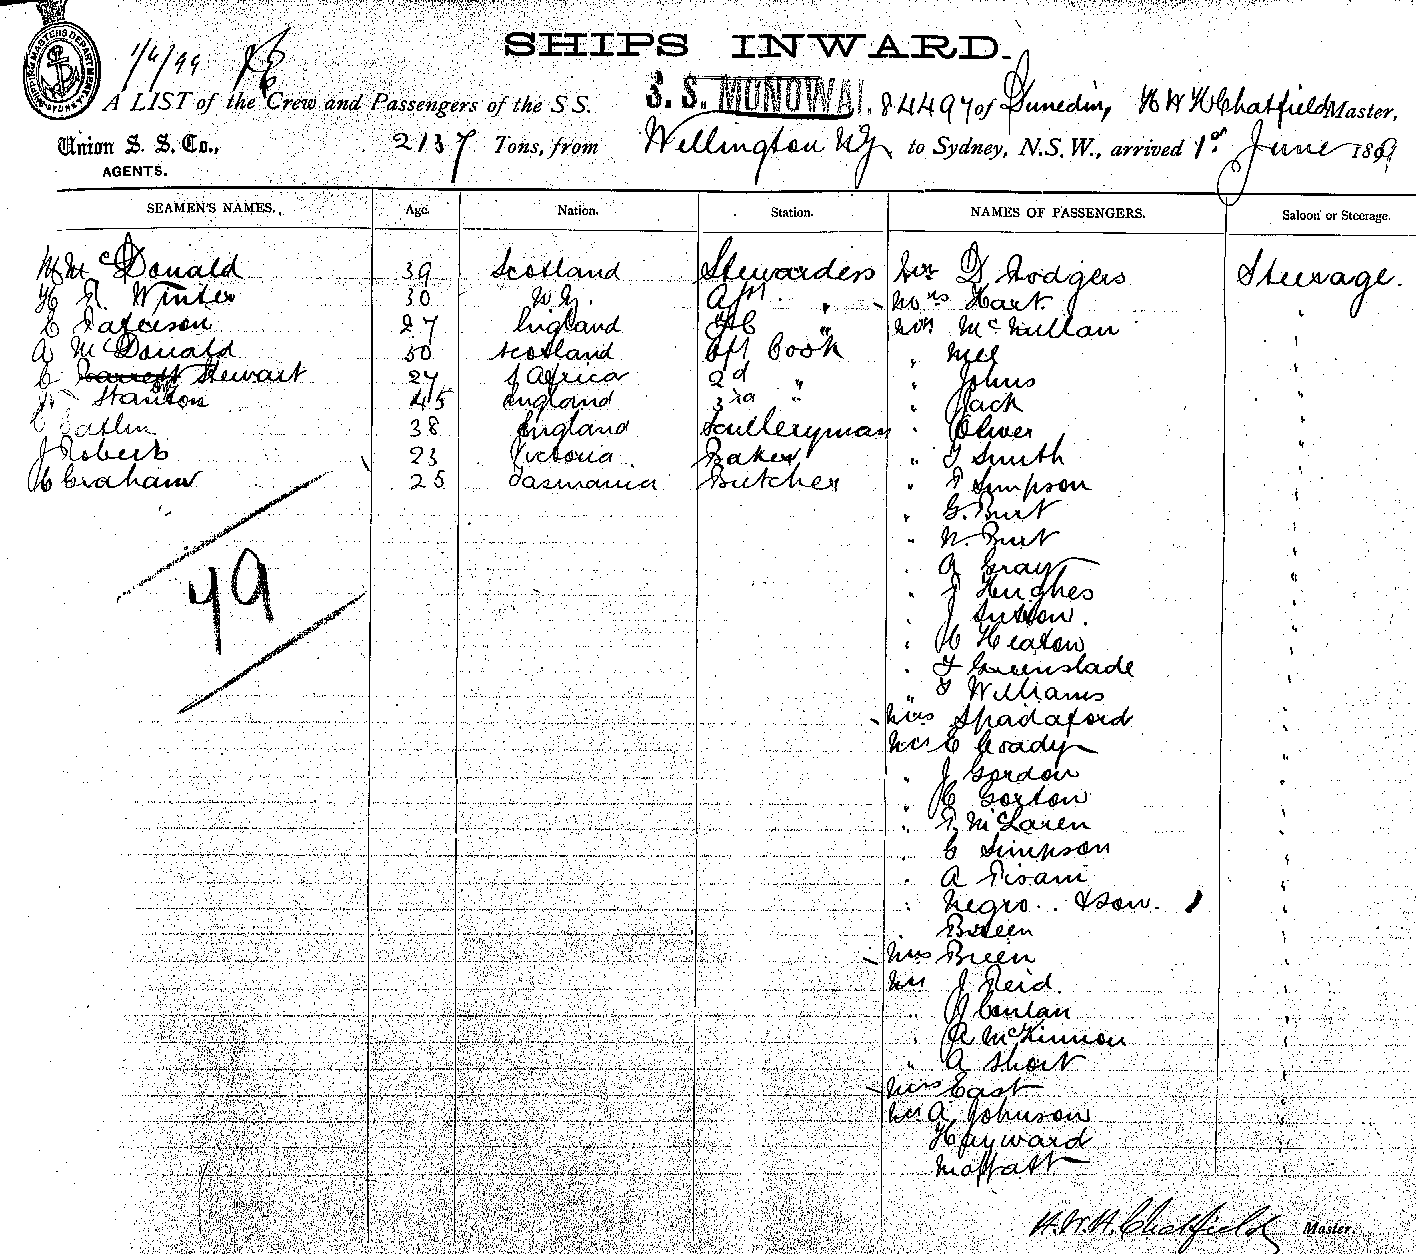 1/6/99
SHIPS INWARD.
A LIST of the Crew and Passengers of the S S. S. S. MONOWAI. 84497 of Dunedin, H W H Chatfield Master,
Union S. S. Co., 2137 Tons, from Wellington NZ to Sydney, N.S.W., arrived 1st June 1899
AGENTS.
SEAMEN'S NAMES. Age. Nation. Station. NAMES OF PASSENGERS. Saloon or Steerage.
M McDonald 39 Scotland Stewardess Mr D Rodgers Steerage.
H R Winter 30 N.Z. " Mrs Hart "
C Paterson 27 England " Mrs McMullan "
A McDonald 50 Scotland Cook "
C Stewart 27 S Africa 2d " " Johns "
J Stanton 45 England 3rd " " Jack "
Catlin 38 England Sculleryman " Oliver "
J Roberts 23 Victoria Baker " J Smith "
H Graham 25 Tasmania Butcher " P Simpson "
" G. Burt "
" N. Burt "
" A Gray "
49
" J Hughes "
" J Sutton. "
" H Heaton "
" F Greenslade "
" F Williams "
Mrs Spadaford "
Mr C Grady "
" J Gordon "
" C Gorton "
" P. McLaren "
" C Simpson "
" A Pisani "
" Negro .. & Son. "
" Breen "
Mrs Breen "
Mr J Reid. "
" Conlan "
" A McKinnon "
" A Short "
Mrs East "
Mr A Johnson "
Hayward "
Moffatt "
H.W.H. Chatfield Master.